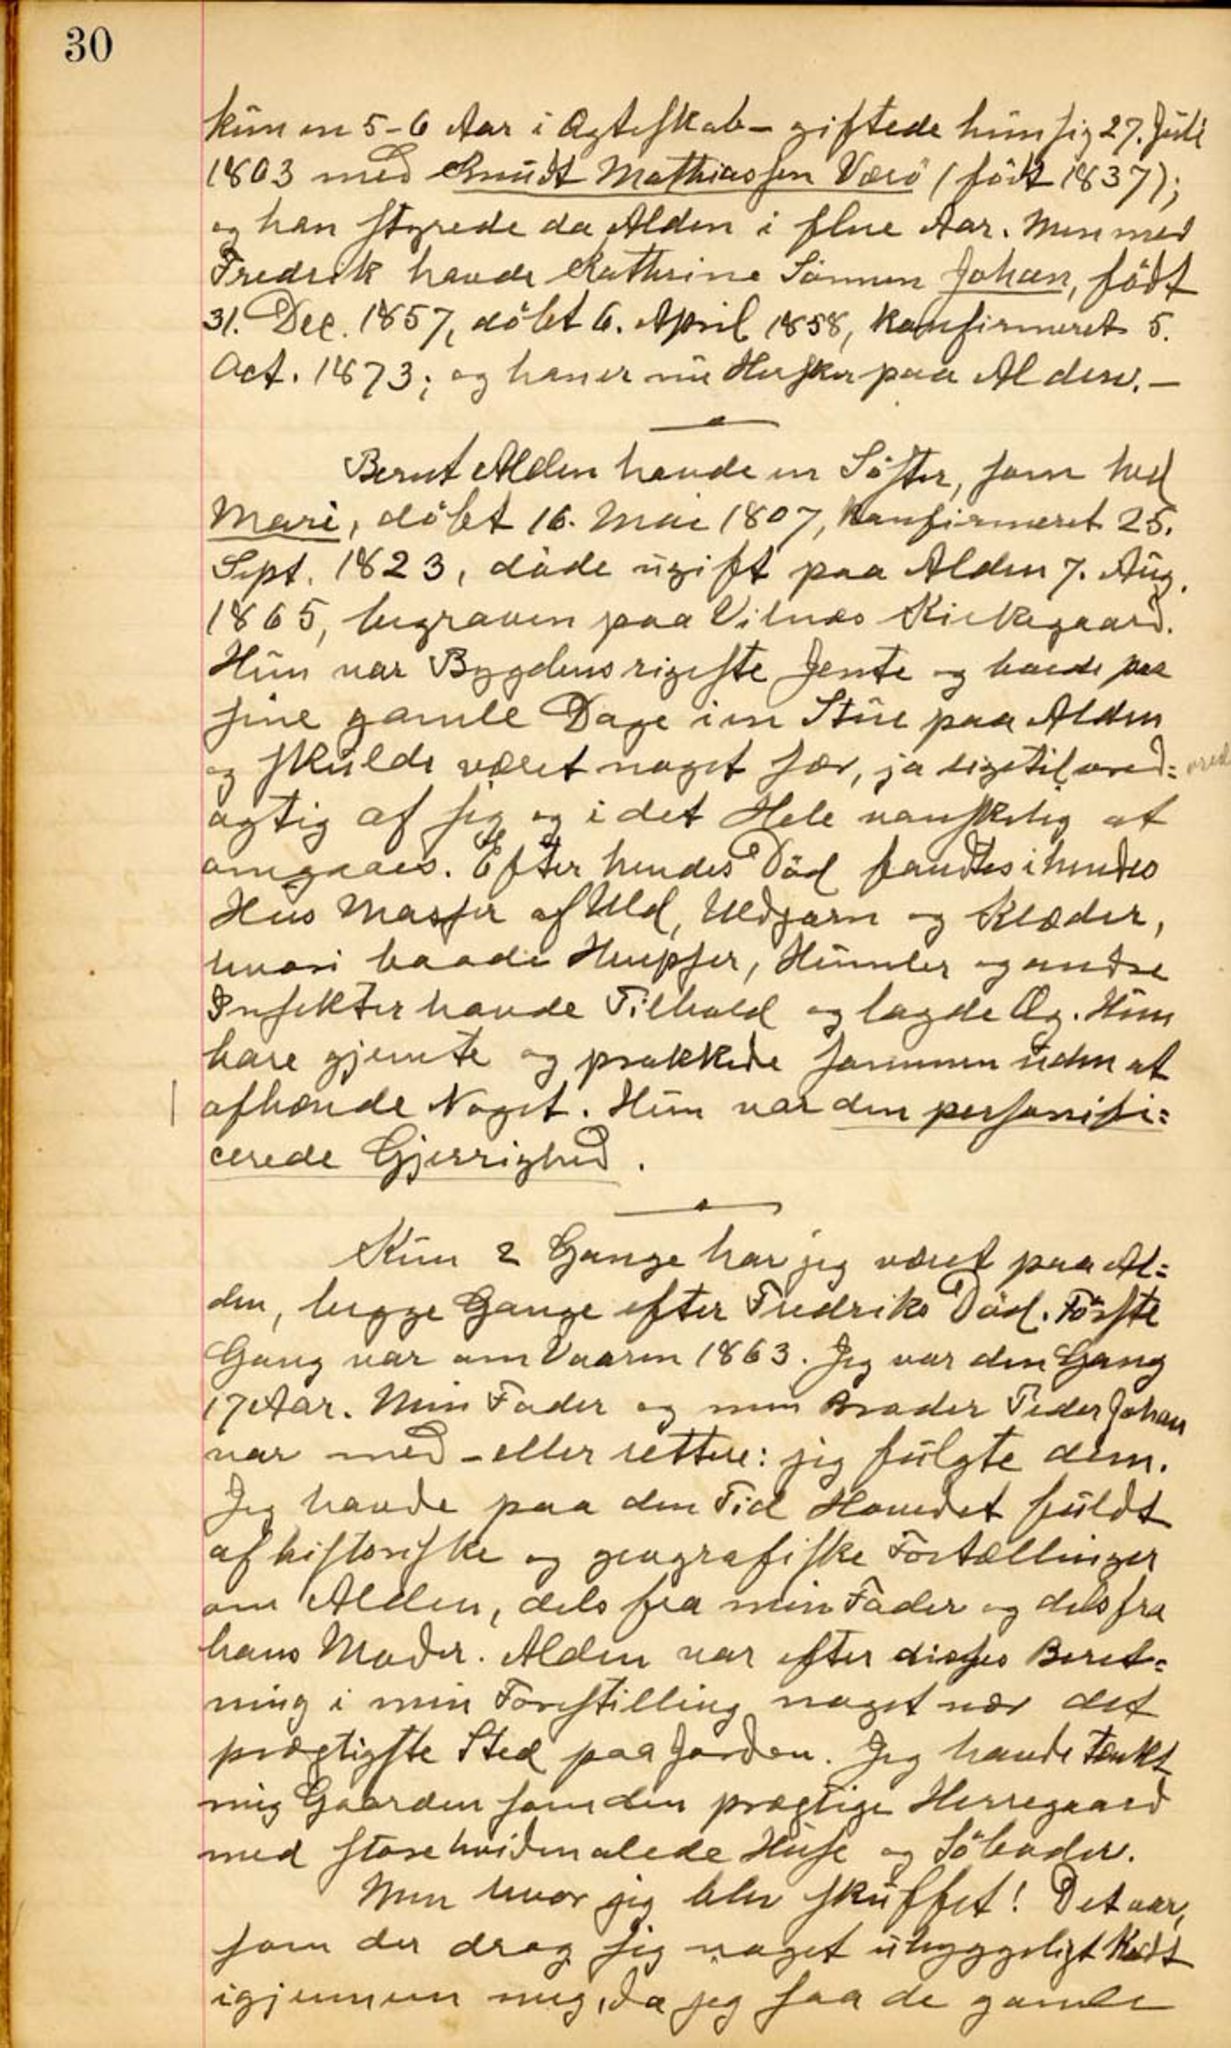 30
kun en 5-6 Aar i Ægteskab - giftede hun sig 27. Juli
1803 med Knudt Mathiassen Værö (födt 1837);
og han styrede da Alden i flere Aar. Men med
Fredrik havde Kathrine Sönnen Johan, födt
31. Dec. 1857, döbt 6. April 1858, konfirmeret 5.
Oct. 1873; og han er nu Hersker paa Alden. -
Bernt Alden havde en Söster, som hed
Mari, döbt 16. Mai 1807, konfirmeret 25.
Sept. 1823, döde ugift paa Alden 7. Aug.
1865, begraven paa Vilnes Kirkegaard.
Hun var Bygdens rigeste Jente og boede paa
sine gamle Dage i en Stue paa Alden
og skulde været noget sær, ja ligetil vred= vred
agtig af sig og i det Hele vanskelig at
omgaaes. Efter hendes Död fandtes i hendes
Hus Masser af Uld, Uldgarn og Klæder,
hvori baade Hvepser, Humler og andre
Insekter havde Tilhold og lagde Æg. Hun
bare gjemte og prakkede sammen uden at
afhænde Noget. Hun var den personifi=
cerede Gjerrighed.
Kun 2 Gange har jeg været paa Al=
den, begge Gange efter Fredriks Död. Förste
Gang var om Vaaren 1863. Jeg var den Gang
17 Aar. Min Fader og min Broder Peder Johan
var med - eller rettere: jeg fulgte dem.
Jeg havde paa den Tid Hovedet fuldt
af historiske og geografiske Fortællinger
om Alden, dels fra min Fader og dels fra
hans Moder. Alden var efter disses Beret=
ning i min Forestilling noget nær det
prægtigste Sted paa Jorden. Jeg havde tænkt
mig Gaarden som den prægtige Herregaard
med store hvidmalede Huse og Söboder.
Men hvor jeg blev skuffet! Det var,
som der drog sig noget uhyggeligt Koldt
igjennem mig, da jeg saa de gamle